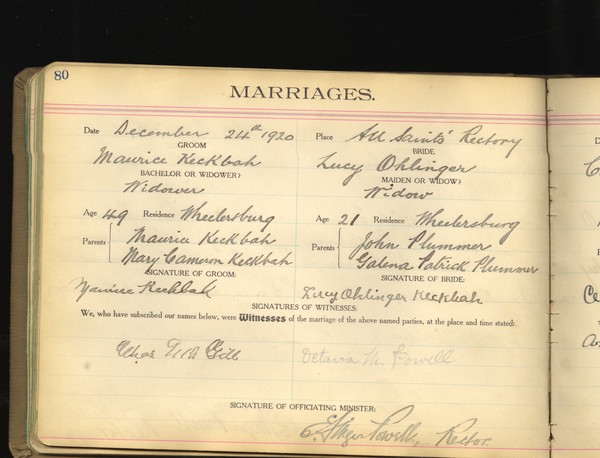 80
MARRIAGES.
Date December 24th 1920 Place All Saints' Rectory
GROOM BRIDE.
Maurice Keckbah Lucy Ohlinger
BACHELOR OR WIDOWER? MAIDEN OR WIDOW?
Widower Widow
Age 49 Residence Wheelersburg Age 21 Residence Wheelersburg
Parents { Maurice Keckbah Parents { John Plummer
Mary Cameron Keckbah Galena Patrick Plummer
SIGNATURE OF GROOM: SIGNATURE OF BRIDE:
Maurice Keckbah Lucy Ohlinger Keckbah
SIGNATURES OF WITNESSES:
We, who have subscribed our names below, were Witnesses of the marriage of the above named parties, at the place and time stated:
Chas Gill Octavia M. Powell
SIGNATURE OF OFFICIATING MINISTER:
Powell, Rector.